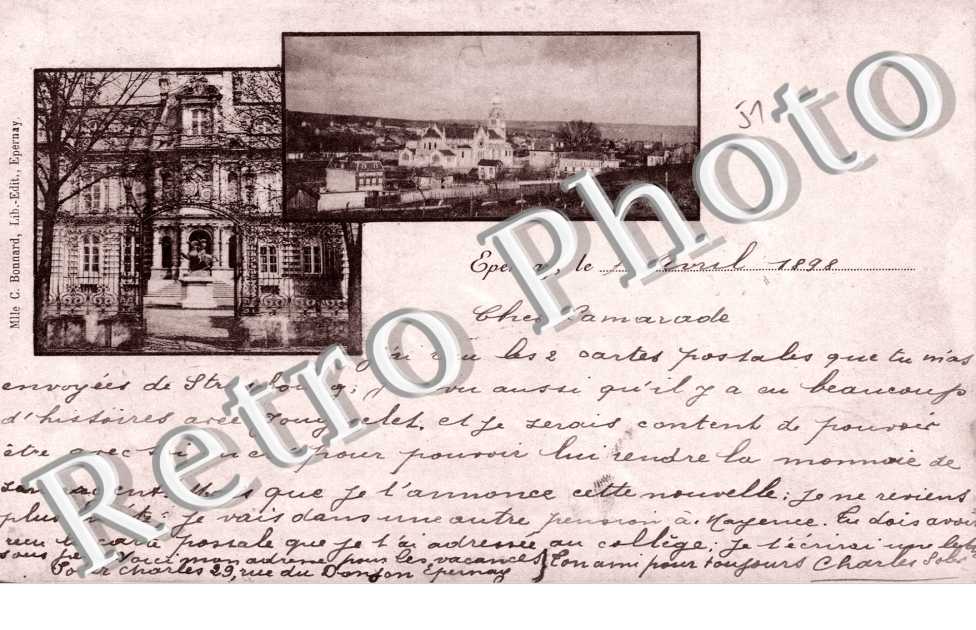 Mlle C. Bonnard, Lib.-Edit., Epernay.
51
Retro Photo
Epernay, le Avril 1898
Cher Camarade
J'ai vu les 2 cartes postales que tu m'as
envoyées de Strasbourg; vu aussi qu'il y a eu beaucoup
d'histoires avec et je serais content de pouvoir
être avec pour pouvoir lui rendre la monnaie de
que je t'annonce cette nouvelle; je ne reviens
je vais dans une autre pension à Mayence. Tu dois avoir
reçu la carte postale que je t'ai adressée au collège. Je t'écrirai une
sous peu Voici mon adresse pour les vacances Ton ami pour toujours Charles
Charles 29, rue du Donjon Epernay